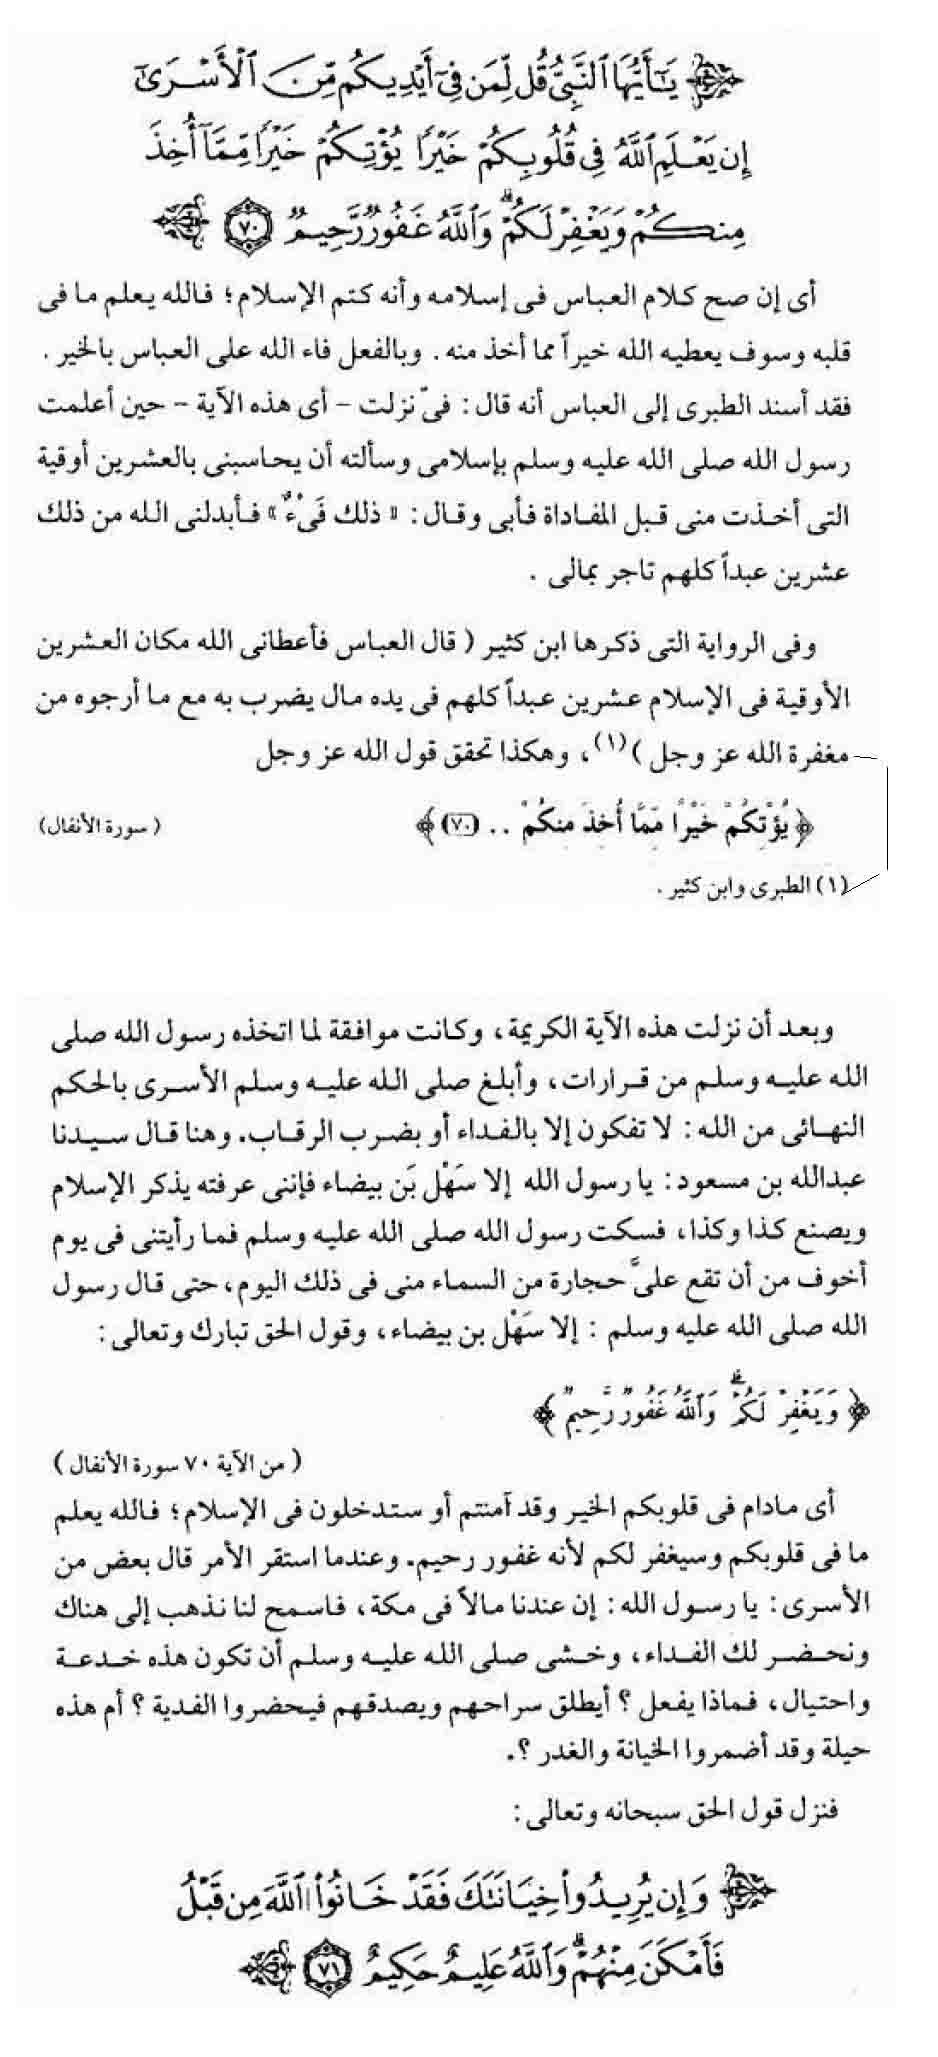 يَٰٓأَيُّهَا ٱلنَّبِىُّ قُل لِّمَن فِىٓ أَيْدِيكُم مِّنَ ٱلْأَسْرَىٰٓ
إِن يَعْلَمِ ٱللَّهُ فِى قُلُوبِكُمْ خَيْرًا يُؤْتِكُمْ خَيْرًا مِّمَّآ أُخِذَ
مِنكُمْ وَيَغْفِرْ لَكُمْ ۗ وَٱللَّهُ غَفُورٌ رَّحِيمٌ ٧٠
أى إن صح كلام العباس فى إسلامه وأنه كتم الإسلام؛ فالله يعلم ما فى
قلبه وسوف يعطيه الله خيراً مما أخذ منه. وبالفعل فاء الله على العباس بالخير.
فقد أسند الطبرى إلى العباس أنه قال: فىّ نزلت - أى هذه الآية - حين أعلمت
رسول الله صلى الله عليه وسلم بإسلامى وسألته أن يحاسبنى بالعشرين أوقية
التى أخذت منى قبل المفاداة فأبى وقال: « ذلك فَىْءٌ » فأبدلنى الله من ذلك
عشرين عبداً كلهم تاجر بمالى .
وفى الرواية التى ذكرها ابن كثير ( قال العباس فأعطانى الله مكان العشرين
الأوقية فى الإسلام عشرين عبداً كلهم فى يده مال يضرب به مع ما أرجوه من
مغفرة الله عز وجل )(١)، وهكذا تحقق قول الله عز وجل
﴿ يُؤْتِكُمْ خَيْرًا مِّمَّا أُخِذَ مِنكُمْ .. (٧٠) ﴾ ( سورة الأنفال)
(١) الطبرى وابن كثير .
وبعد أن نزلت هذه الآية الكريمة، وكانت موافقة لما اتخذه رسول الله صلى
الله عليه وسلم من قرارات، وأبلغ صلى الله عليه وسلم الأسرى بالحكم
النهائى من الله: لا تفكون إلا بالفداء أو بضرب الرقاب. وهنا قال سيدنا
عبدالله بن مسعود: يا رسول الله إلا سَهْل بَن بيضاء فإننى عرفته يذكر الإسلام
ويصنع كذا وكذا، فسكت رسول الله صلى الله عليه وسلم فما رأيتنى فى يوم
أخوف من أن تقع علىَّ حجارة من السماء منى فى ذلك اليوم، حتى قال رسول
الله صلى الله عليه وسلم : إلا سَهْل بن بيضاء، وقول الحق تبارك وتعالى:
﴿ وَيَغْفِرْ لَكُمْ ۗ وَٱللَّهُ غَفُورٌ رَّحِيمٌ ﴾
( من الآية ٧٠ سورة الأنفال )
أى مادام فى قلوبكم الخير وقد آمنتم أو ستدخلون فى الإسلام؛ فالله يعلم
ما فى قلوبكم وسيغفر لكم لأنه غفور رحيم. وعندما استقر الأمر قال بعض من
الأسرى: يا رسول الله: إن عندنا مالاً فى مكة، فاسمح لنا نذهب إلى هناك
ونحضر لك الفداء، وخشى صلى الله عليه وسلم أن تكون هذه خدعة
واحتيال، فماذا يفعل ؟ أيطلق سراحهم ويصدقهم فيحضروا الفدية ؟ أم هذه
حيلة وقد أضمروا الخيانة والغدر ؟.
فنزل قول الحق سبحانه وتعالى:
وَإِن يُرِيدُوا۟ خِيَانَتَكَ فَقَدْ خَانُوا۟ ٱللَّهَ مِن قَبْلُ
فَأَمْكَنَ مِنْهُمْ ۗ وَٱللَّهُ عَلِيمٌ حَكِيمٌ ٧١